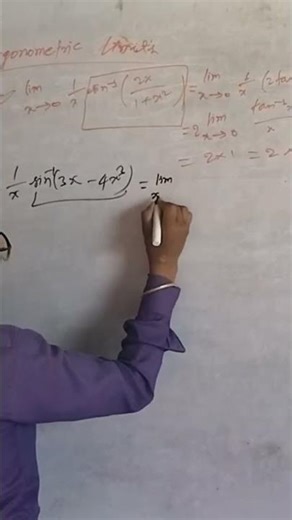 gonometric Limits
= lim x→0 1/x sin⁻¹(2x/1+x²) = lim x→0 1/x (2 tan
= 2 lim x→0 tan⁻¹x/x
= 2×1 = 2
1/x sin⁻¹(3x − 4x³) = lim x